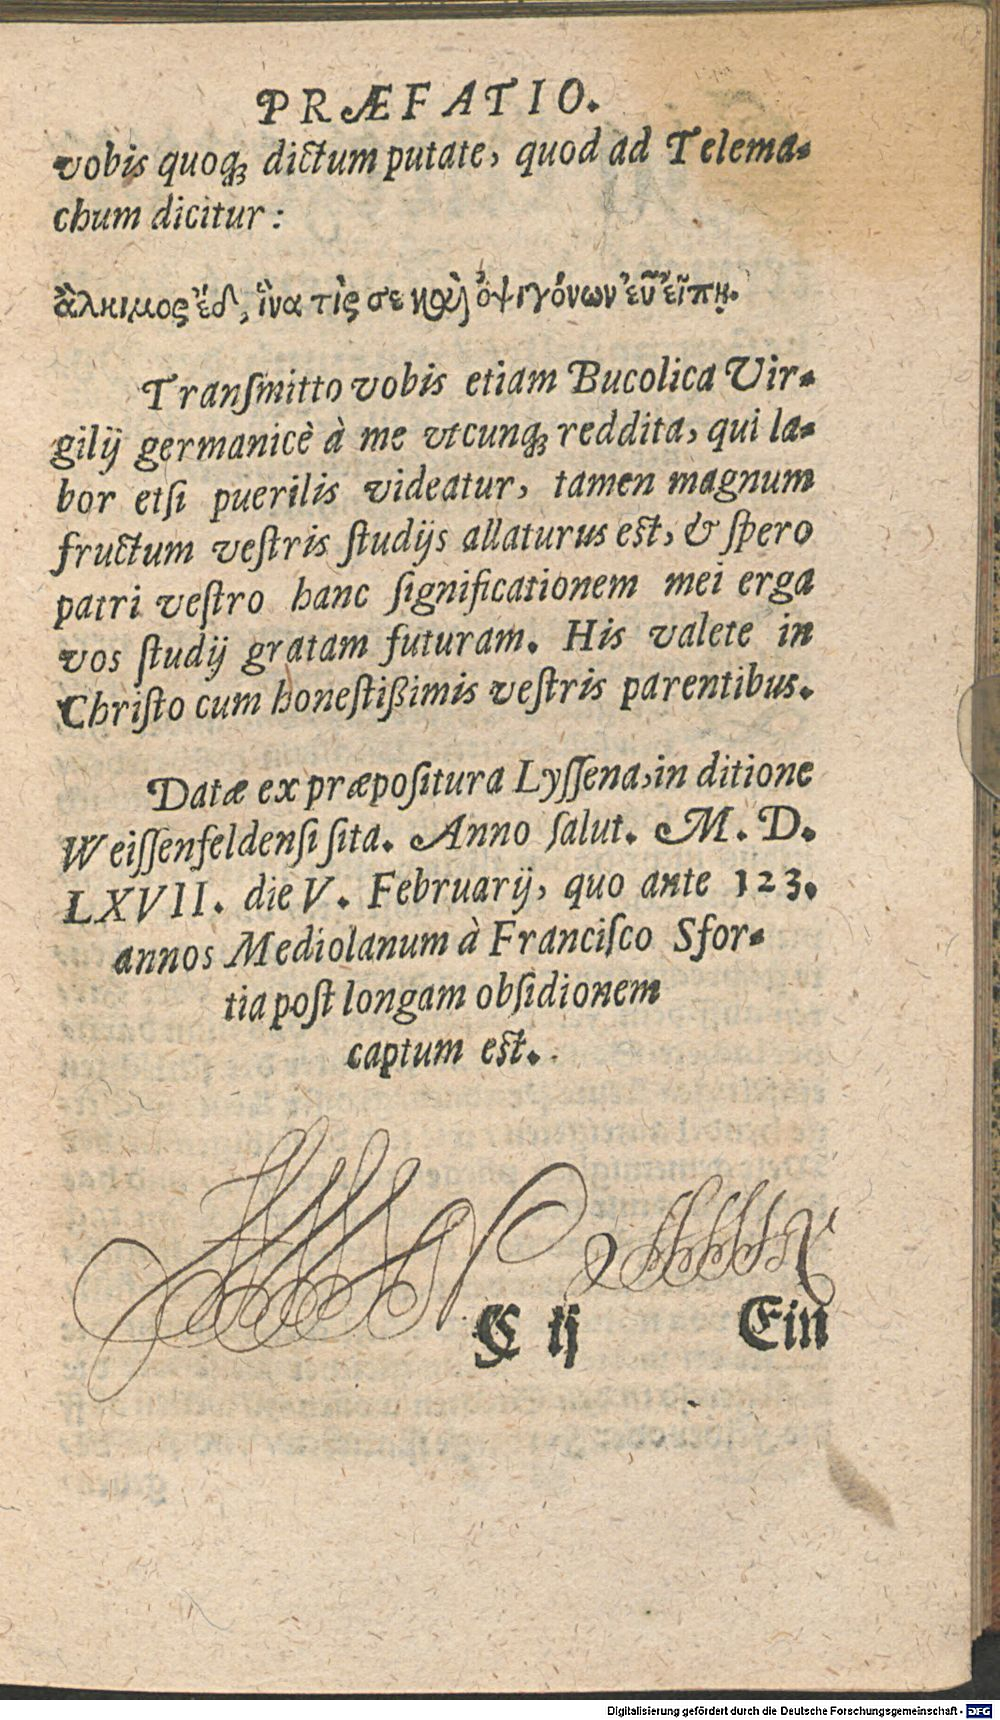 PRÆFATIO.
vobis quoqꝫ dictum putate, quod ad Telema-
chum dicitur:
ἄλκιμος ἔσσ', ἵνα τὶς σε καὶ ὀψιγόνων εὖ εἴπῃ.
Tranſmitto vobis etiam Bucolica Vir-
gilij germanicè à me vtcunqꝫ reddita, qui la-
bor etſi puerilis videatur, tamen magnum
fructum veſtris ſtudijs allaturus eſt, & ſpero
patri veſtro hanc ſignificationem mei erga
vos ſtudij gratam futuram. His valete in
Chriſto cum honeſtißimis veſtris parentibus.
Datæ ex præpoſitura Lyſſena, in ditione
Weiſſenfeldenſi ſita. Anno ſalut. M. D.
LXVII. die V. Februarij, quo ante 123.
annos Mediolanum à Franciſco Sfor-
tia poſt longam obſidionem
captum eſt.
C ij Ein
Digitalisierung gefördert durch die Deutsche Forschungsgemeinschaft - DFG